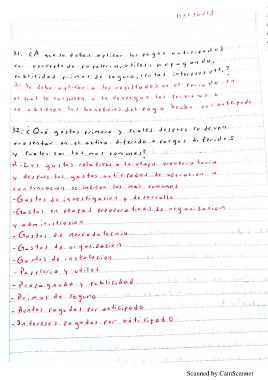 31. ¿A que se deben aplicar los pagos anticipados
en concepto de papeleria, utiles, propaganda,
publicidad primas de seguro, rentas intereses etc.?
R: Se debe aplicar a los resultados en el periodo en
el cual se consumen o se devengan los servicios o
se obtienen los beneficios del pago hecho por anticipado
32. ¿Que gastos primero y cuales despues se deben
presentar en el activo diferido o cargos diferidos
y cuales son los mas comunes?
R: Los gastos relativos a la etapa preoperatoria
y despues los gastos anticipados de operacion a
continuación se indican los mas comunes
-Gastos de investigacion y desarrollo
-Gastos en etapas preoperativas de organizacion
y administracion
-Gastos de mercadotecnia
-Gastos de organizacion
-Gastos de instalacion
-Papeleria y utiles
-Propaganda y publicidad
-Primas de seguro
-Rentas pagadas por anticipado
-Intereses pagados por anticipado
Scanned by CamScanner